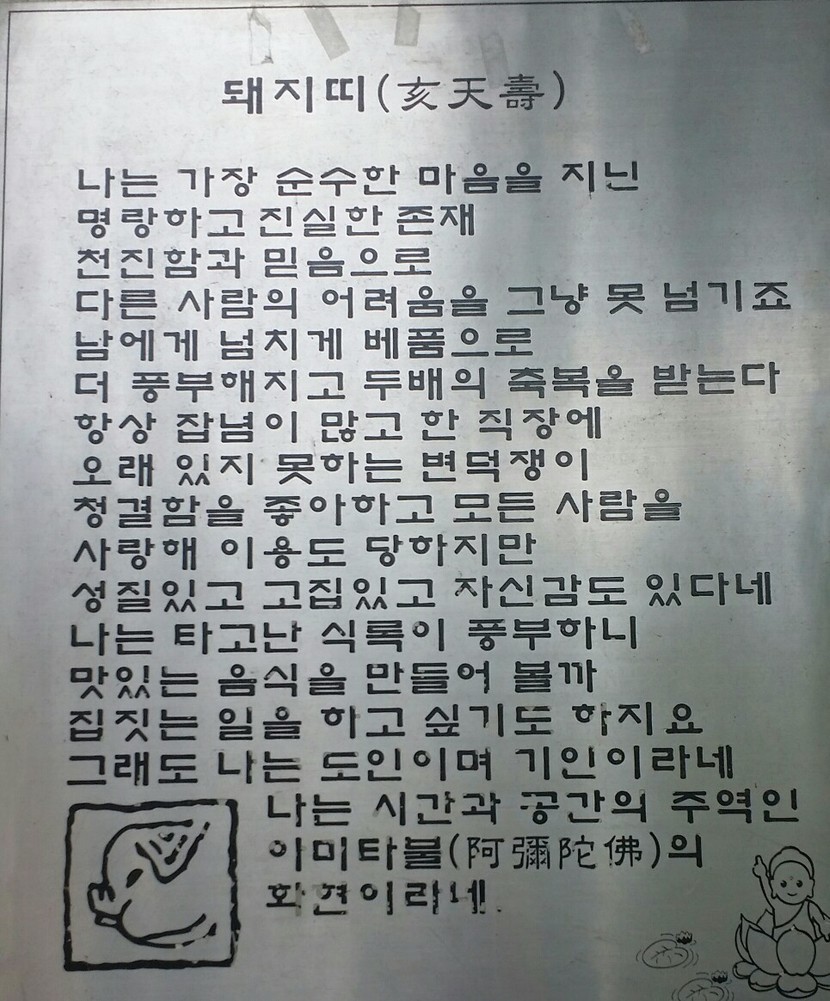 돼지띠(亥天壽)
나는 가장 순수한 마음을 지닌
명랑하고 진실한 존재
천진함과 믿음으로
다른 사람의 어려움을 그냥 못 넘기죠
남에게 넘치게 베품으로
더 풍부해지고 두배의 축복을 받는다
항상 잡념이 많고 한 직장에
오래 있지 못하는 변덕쟁이
청결함을 좋아하고 모든 사람을
사랑해 이용도 당하지만
성질있고 고집있고 자신감도 있다네
나는 타고난 식록이 풍부하니
맛있는 음식을 만들어 볼까
집짓는 일을 하고 싶기도 하지요
그래도 나는 도인이며 기인이라네
나는 시간과 공간의 주역인
아미타불(阿彌陀佛)의
화현이라네.